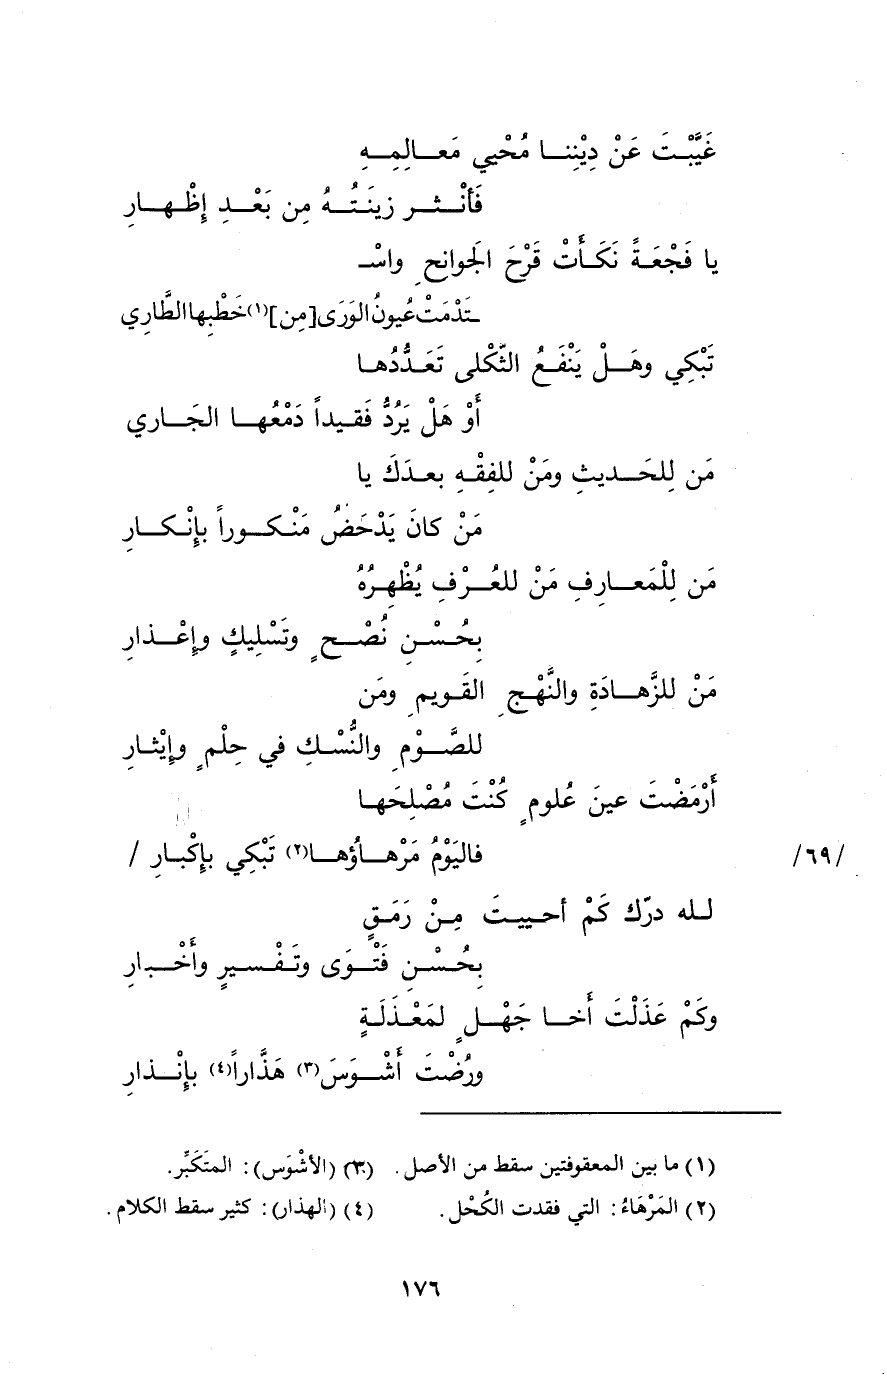 غَيَّبْتَ عَنْ دِيْنِنا مُحْيي مَعالِمِهِ
فَأنْثر زينَتُهُ مِن بَعْدِ إظْهارِ
يا فَجْعَةً نَكَأَتْ قَرْحَ الجَوانحِ واسْـ
ـتَدْمَتْ عُيونُ الوَرَى [مِن](١) خَطْبِها الطَّارِي
تَبْكِي وهَلْ يَنْفَعُ الثّكْلى تَعَدُّدُها
أوْ هَلْ يَرُدُّ فَقيداً دَمْعُها الجَاري
مَن لِلحَديثِ ومَنْ للفِقْهِ بعدَكَ يا
مَنْ كانَ يَدْحَضُ مَنْكوراً بإنْكارِ
مَن لِلْمَعارِفِ مَنْ للعُرْفِ يُظْهِرُهُ
بِحُسْنِ نُصْحٍ وتَسْلِيكٍ وإعْذارِ
مَنْ للزَّهادَةِ والنَّهْجِ القَويمِ ومَن
للصَّوْمِ والنُّسْكِ في حِلْمٍ وإيْثارِ
أَرْمَضْتَ عينَ عُلومٍ كُنْتَ مُصْلِحَها
فاليَوْمُ مَرْهاؤُها(٢) تَبْكِي بإكْبارِ /
/٦٩/
لله درّك كَمْ أحييتَ مِنْ رَمَقٍ
بِحُسْنِ فَتْوَى وتَفْسيرٍ وأَخْبارِ
وكَمْ عَذَلْتَ أَخا جَهْلٍ لمَعْذَلَةٍ
ورُضْتَ أَشْوَسَ(٣) هَذَّاراً(٤) بإنْذارِ
(١) ما بين المعقوفتين سقط من الأصل. (٣) (الأشْوَس): المتَكَبِّر.
(٢) المَرْهَاءُ: التي فقدت الكُحْل. (٤) (الهذار): كثير سقط الكلام.
١٧٦